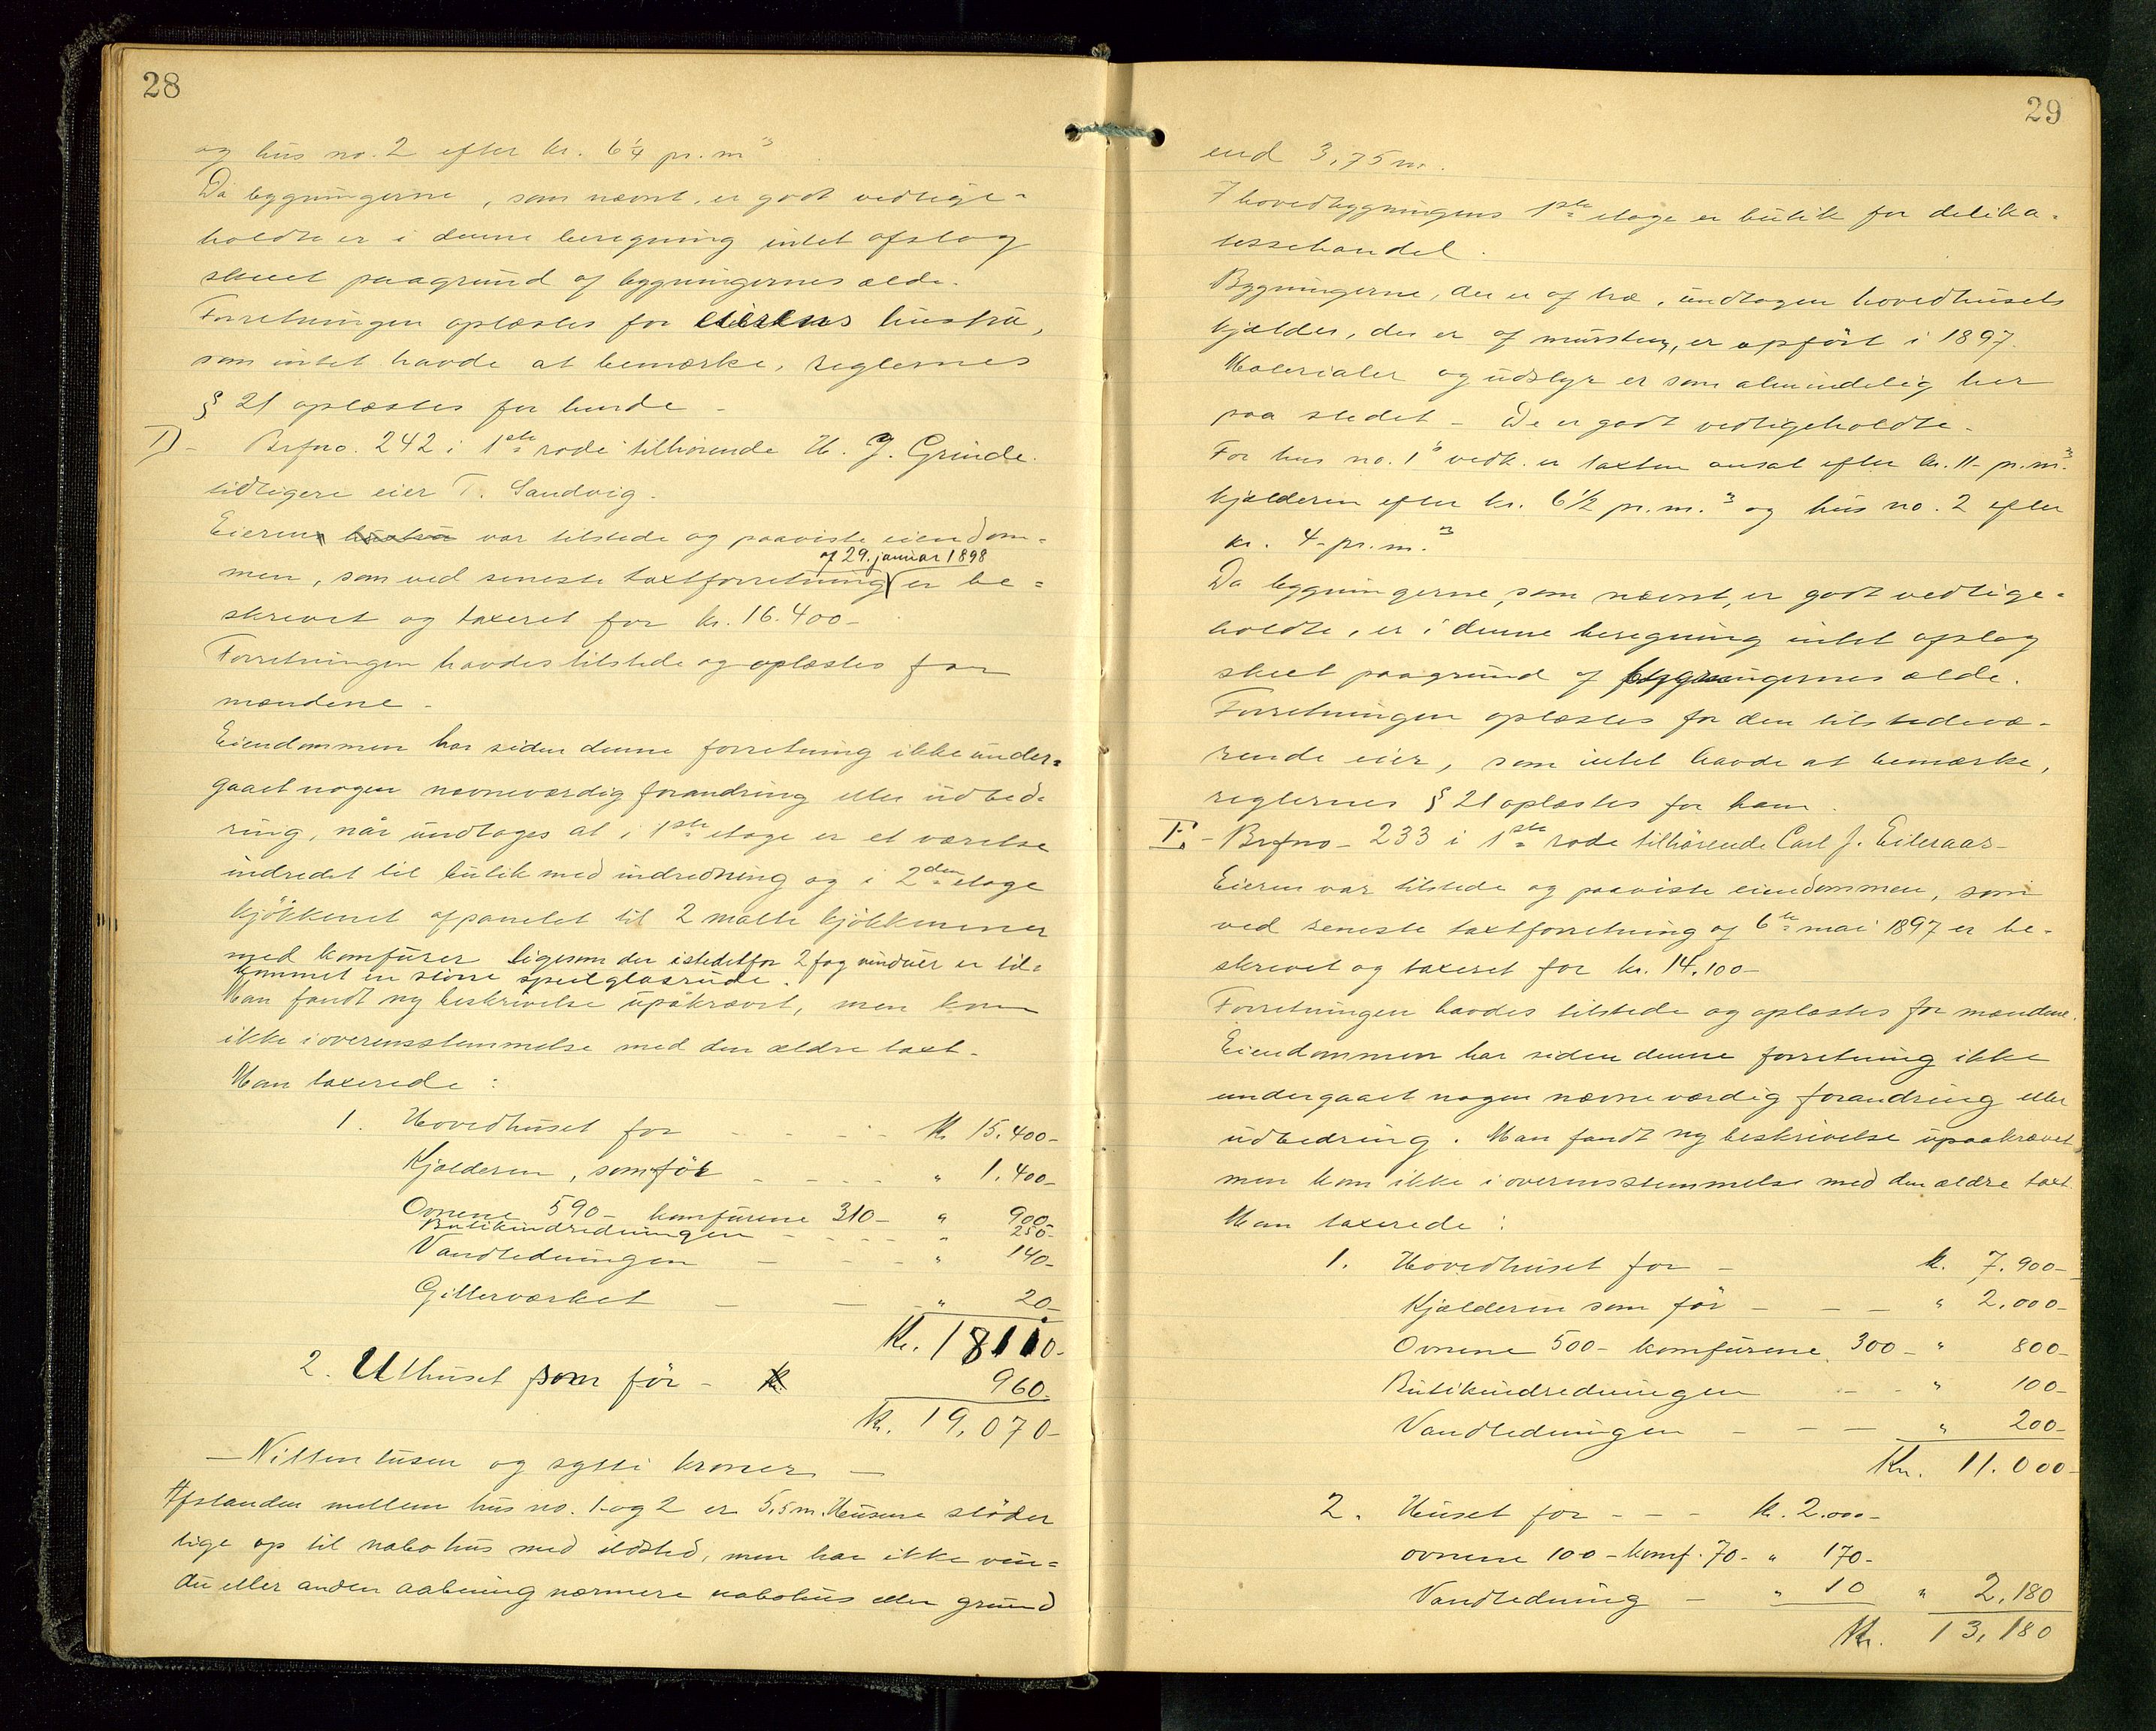 28
og hus no. 2 efter kr. 6¼ pr. m³
Da bygningerne, som nævnt, er godt vedlige-
holdte er i denne beregning intet afslag
skeet paagrund af bygningernes ælde.
Forretningen oplæstes for eierens hustru,
som intet havde at bemærke, reglernes
§ 21 oplæstes for hende -
D - Brfno. 242 i 1ste rode tilhørende H. J. Grinde.
tidligere eier T. Sandvig.
Eieren hustru var tilstede og paaviste eiendom-
af 29. januar 1898
men, som ved seneste taxtforretning er be-
skrevet og taxeret for kr. 16.400-
Forretningen havdes tilstede og oplæstes for
mændene -
Eiendommen har siden denne forretning ikke under-
gaaet nogen nævneværdig forandring eller udbed-
ring, når undtages at i 1ste etage er et værelse
indredet til butik med indredning og i 2den etage
kjökkenet afpanelet til 2 malte kjökkenener
med komfurer ligesom der istedetfor 2 fag vinduer er til-
kommet en större speilglasrude.
Man fandt ny beskrivelse upåkrævet, men kom
ikke i overensstemmelse med den ældre taxt.
Man taxerede:
1. Hovedhuset for - - - - Kr. 15.400-
Kjælderen, som för - - - - " 1.400-
Ovnene 590- komfurene 310- " 900-
Butikindredningen - - - - " 250-
Vandledningen - - - - " 140-
Gitterværket - - - " 20-
Kr. 18110-
2. Uthuset som för - 960-
Kr. 19,070-
- Nitten tusen og sytti kroner -
Afstanden mellem hus no. 1 og 2 er 5,5 m. Husene stöder
lige op til nabohus med ildsted, men har ikke vin-
du eller anden aabning nærmere nabohus eller grund
29
end 3,75 m.
I hovedbygningens 1ste etage er butik for delika-
tessehandel.
Bygningerne, der er af træ, undtagen hovedhusets
kjælder, der er af mursten, er opfört i 1897.
Materialer og udstyr er som almindelig her
paa stedet - De er godt vedligeholdte -
For hus no. 1s vedk. er taxten ansat efter kr. 11- pr. m.³
kjælderen efter kr. 6½ pr. m.³ og hus no. 2 efter
kr. 4- pr. m.³
Da bygningerne, som nævnt, er godt vedlige-
holdte, er i denne beregning intet afslag
skeet paagrund af bygningernes ælde.
Forretningen oplæstes for den tilstedevæ-
rende eier, som intet havde at bemærke,
reglernes § 21 oplæstes for ham.
E. - Brfno - 233 i 1ste rode tilhørende Carl J. Eileraas -
Eieren var tilstede og paaviste eiendommen, som
ved seneste taxtforretning af 6te mai 1897 er be-
skrevet og taxeret for kr. 14.100-
Forretningen havdes tilstede og oplæstes for mændene.
Eiendommen har siden denne forretning ikke
undergaaet nogen nævneværdig forandring eller
udbedring. Man fandt ny beskrivelse upaakrævet
men kom ikke i overensstemmelse med den ældre taxt.
Man taxerede:
1. Hovedhuset for - k. 7.900-
Kjælderen som för - - - " 2.000-
Ovnene 500- komfurene 300- " 800-
Butikindredningen - - " 100-
Vandledningen - - - " 200-
Kr. 11.000-
2. Huset for - - - Kr. 2.000-
ovnene 100- komf. 70- " 170-
Vandledning - " 10 " 2,180
Kr. 13,180